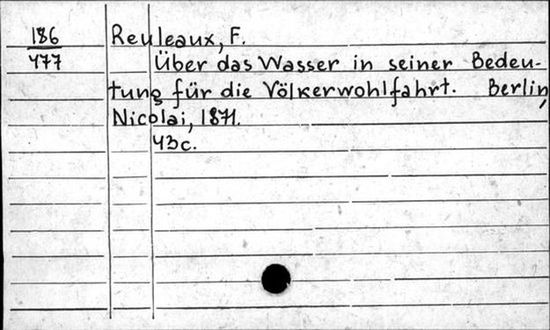 186 Reuleaux, F.
477 Über das Wasser in seiner Bedeu-
tung für die Völkerwohlfahrt. Berlin,
Nicolai, 1871.
43c.